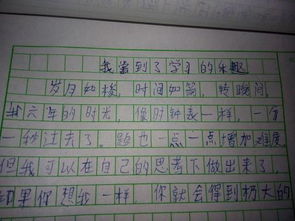 我尝到了学习的乐趣
岁月如梭，时间如箭，转瞬间
六年的时光，像时钟表一样，一分
一秒过去了。题也一点一点增加难度
但我可以在自己的思考下做出来了，
如果你想我一样，你就会得到极大的